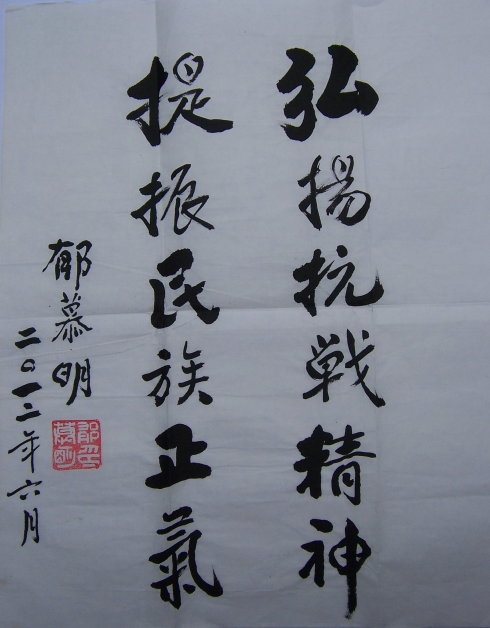 弘揚抗戦精神
提振民族正氣
郁慕明
二〇一二年六月